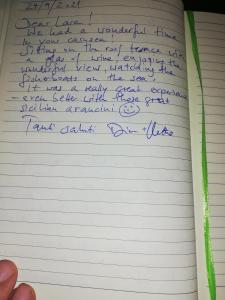 24/9/2021
Dear Lara!
We had a wonderful time
in your casa
Sitting on the roof terrace with
a glas of wine, enjoying the
wonderful view, watching the
fishorboats on the sea,
It was a really great experience
- even better with these great
sicilian arancini
Tanti saluti